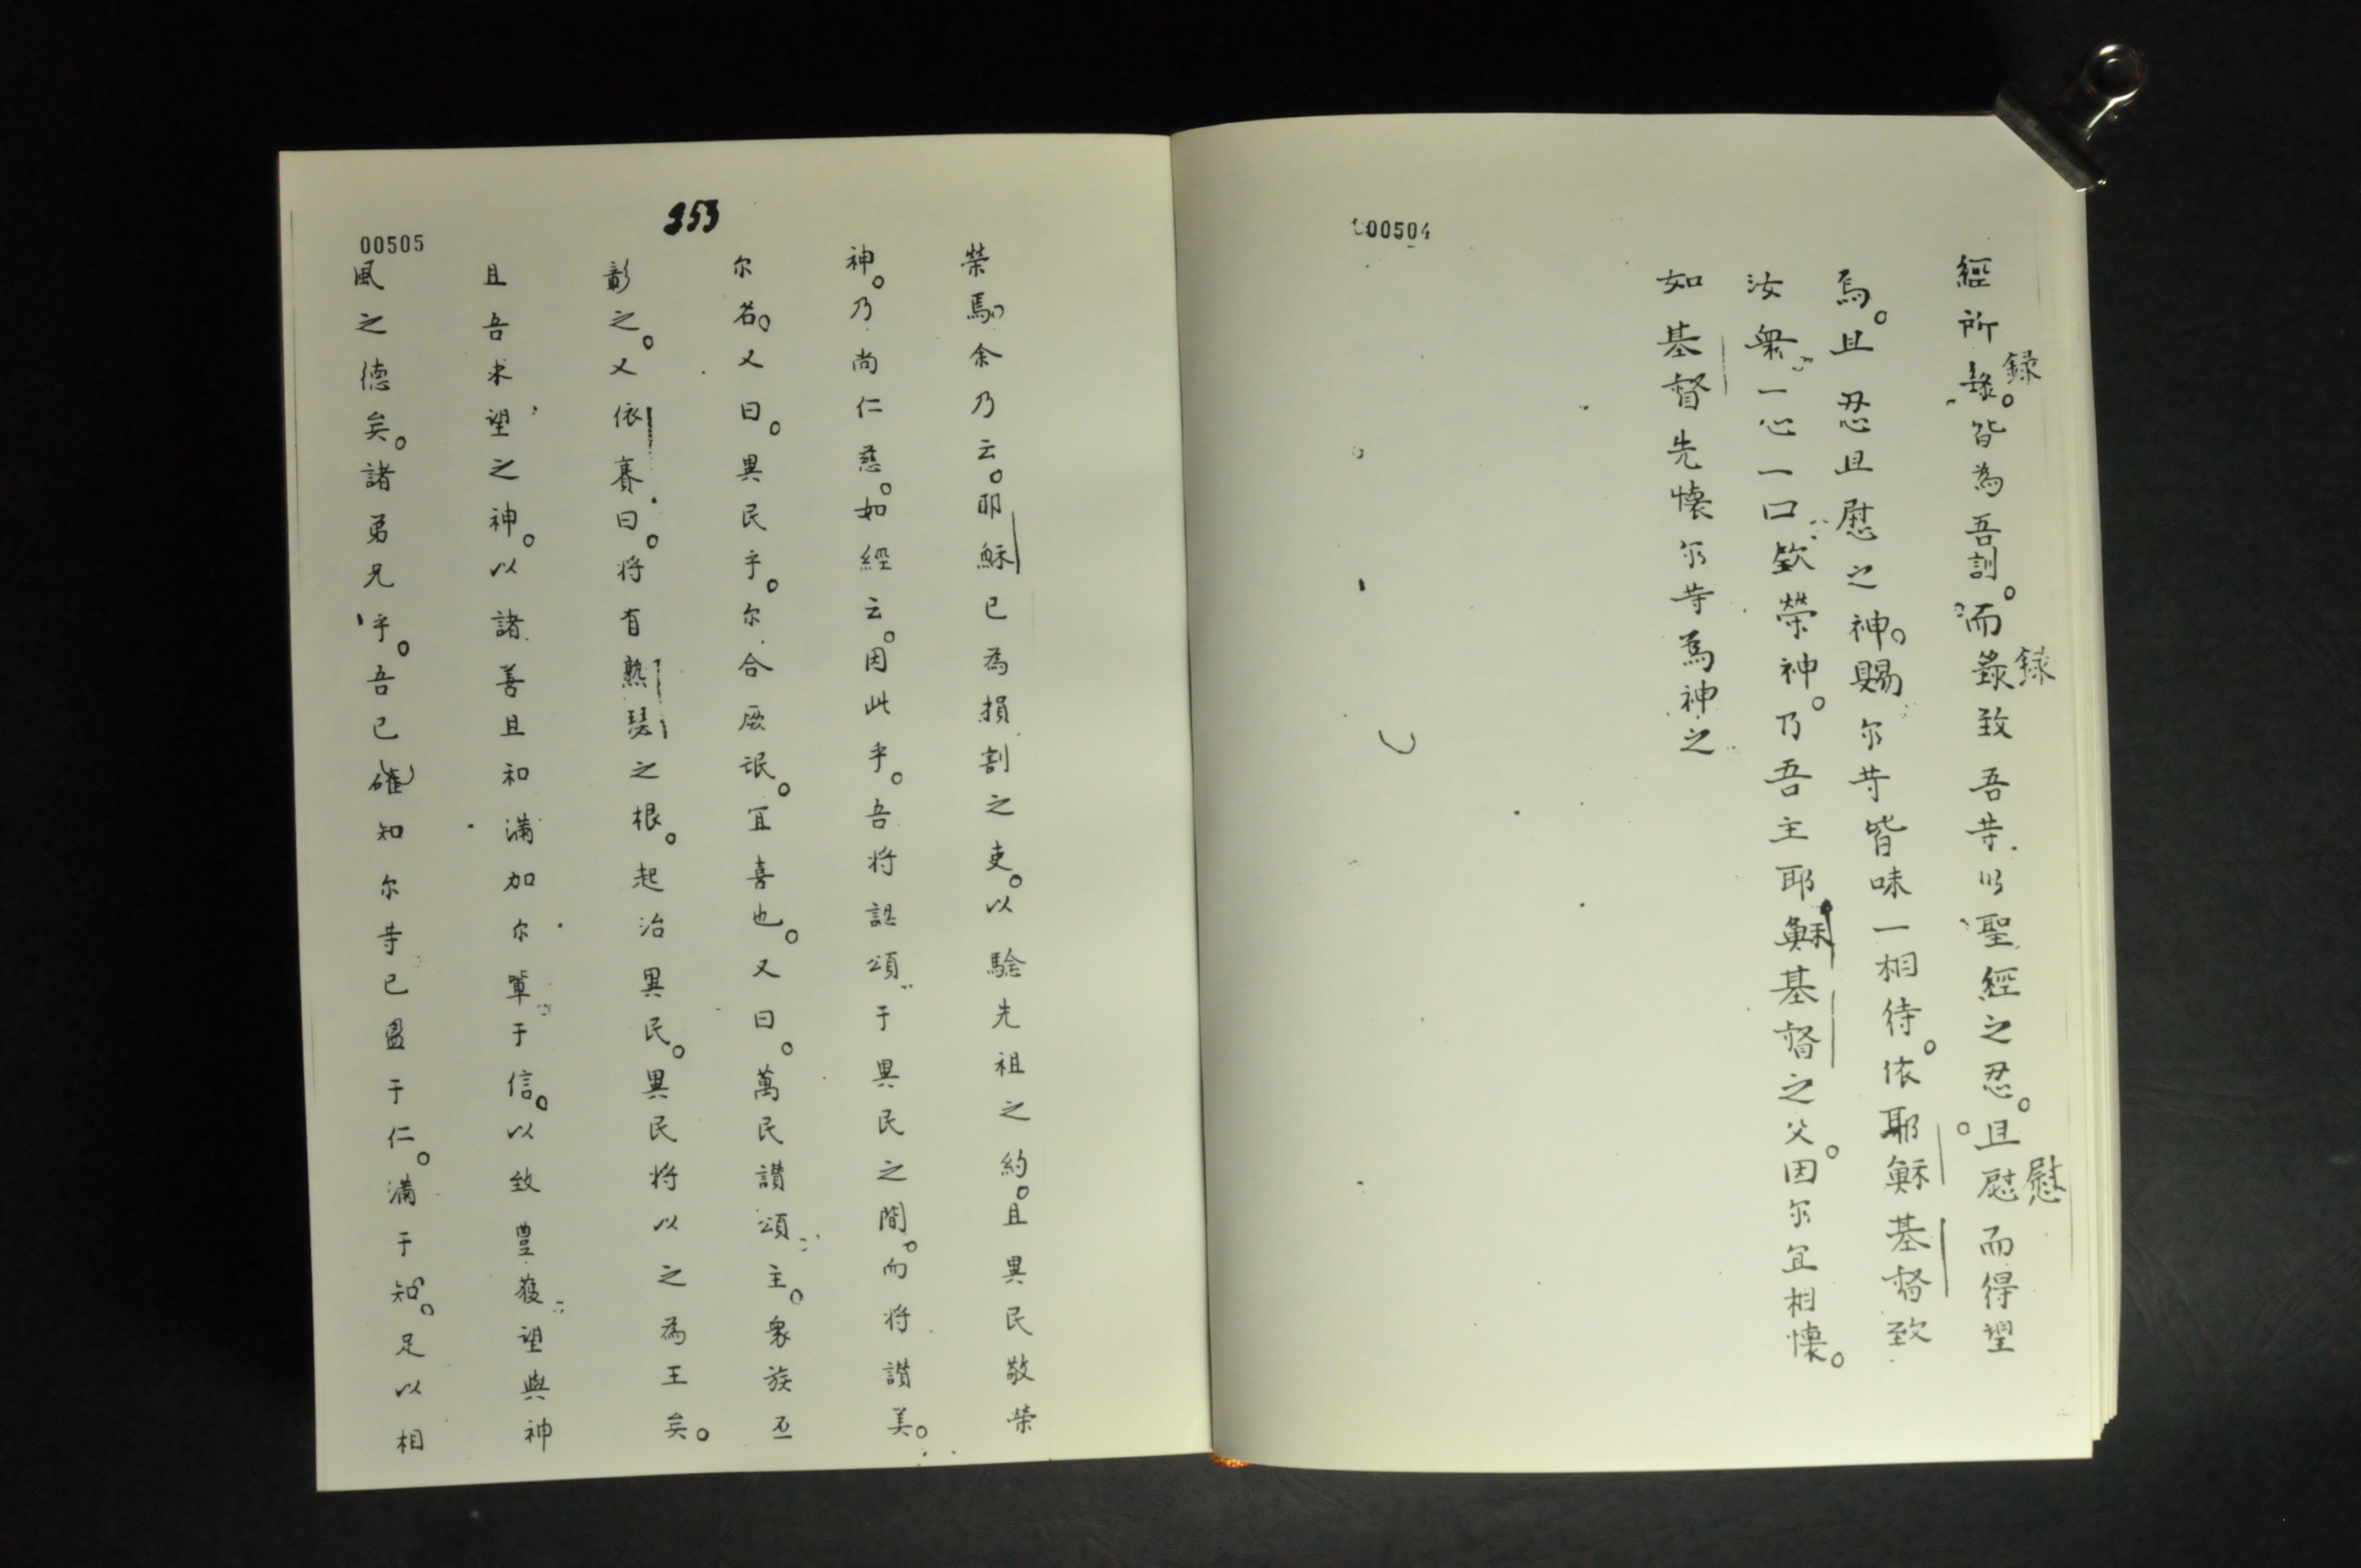 000504
經所錄。皆為吾訓。而錄致吾䓁以聖經之忍。且慰而得望
録
録
慰
焉。且忍且慰之神。賜尔䓁皆味一相待。依耶穌基督致
汝衆一心一口欽榮神。乃吾主耶穌基督之父。因尔宜相懷。
如基督先懷尔䓁為神之
353
00505
榮焉。余乃云。耶穌已為損割之吏。以騐先祖之約。且異民敬榮
神。乃尚仁慈。如經云。因此乎。吾将認頌于異民之間。而将讃美。
尔名。又曰。異民乎。尔合厥氓。宜喜也。又曰。萬民讃頌主。衆族丕
彰之。又依賽曰。将有熱瑟之根。起治異民。異民将以之為王矣。
且吾求望之神。以諸善且和滿加尔輩于信。以致豊獲望與神
風之德矣。諸弟兄乎。吾已確知尔䓁已盈于仁。滿于知。足以相